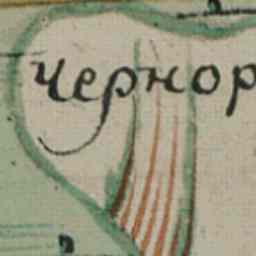 Чернор